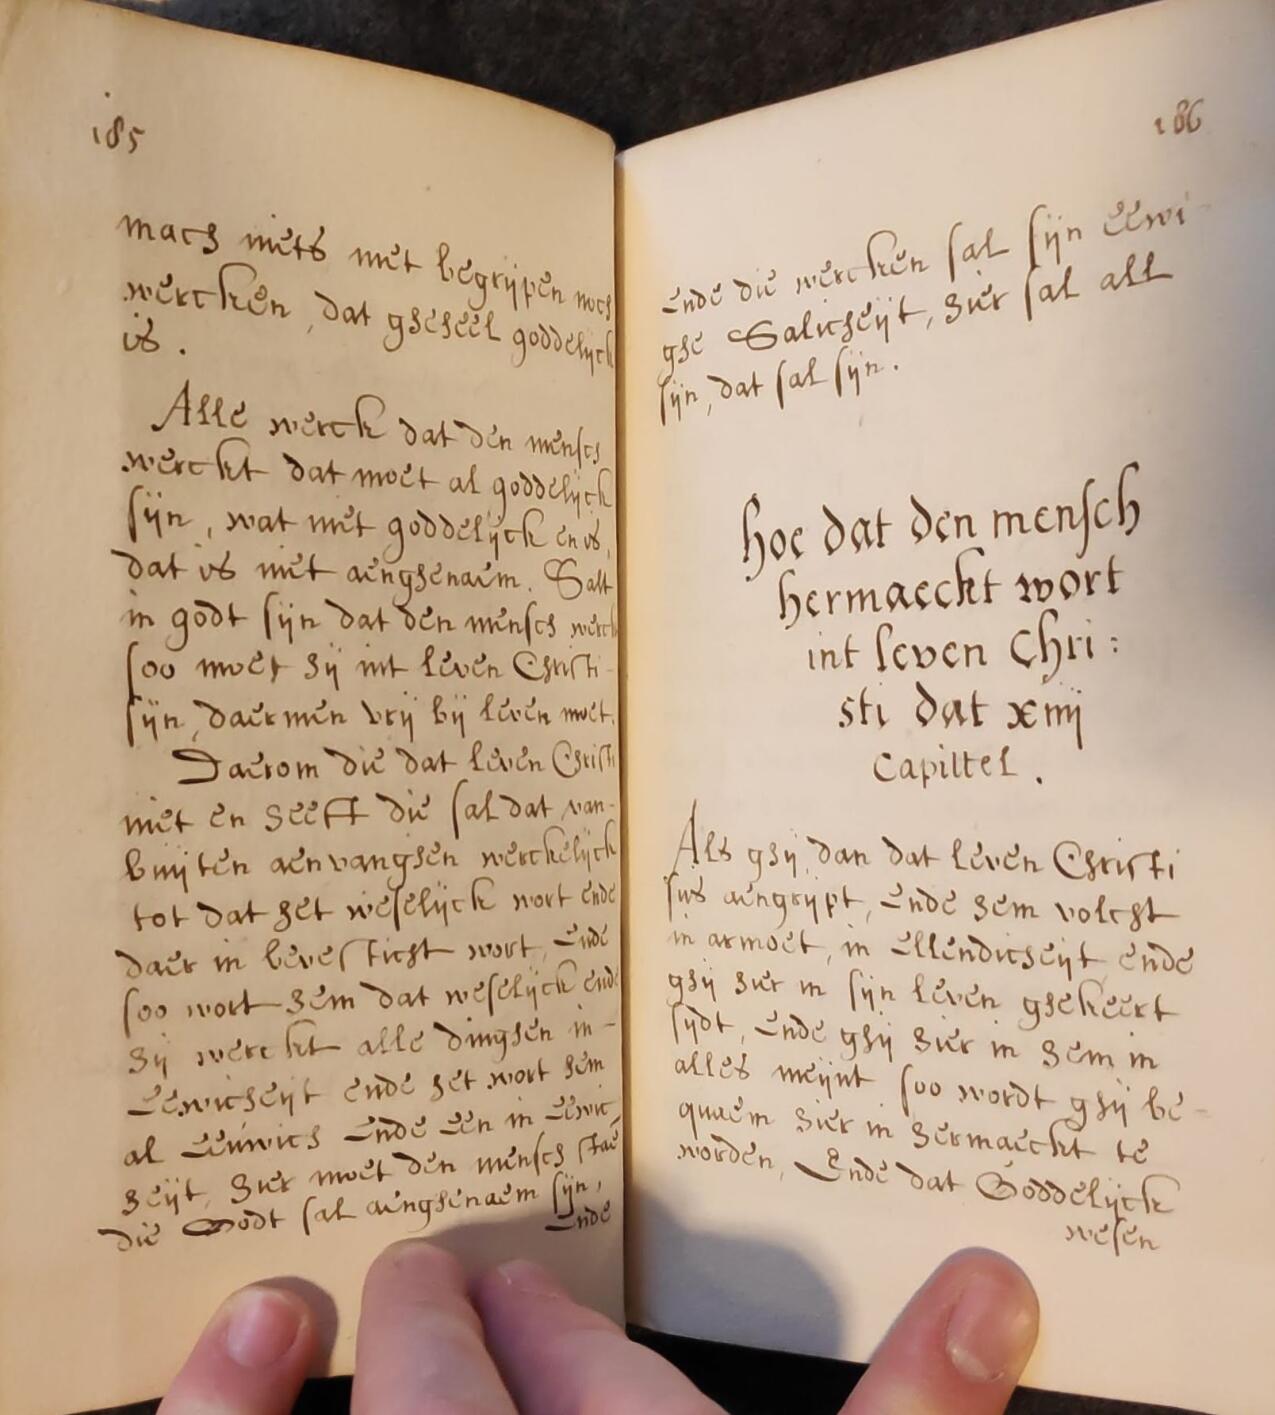 185
mach niets niet begrijpen noch
wercken, dat gheheel goddelijck
is.
Alle werck dat den mensch
werckt dat moet al goddelijck
sijn, wat niet goddelijck en is,
dat is niet aenghenaem. Salt
in godt sijn dat den mensch werckt
soo moet hij int leven Christi
sijn, daermen vrij bij leven moet.
Daerom die dat leven Christi
niet en heeft die sal dat van-
buijten aenvanghen werckelijck
tot dat het weselijck wort ende
daer in bevesticht wort, Ende
soo wort hem dat weselijck ende
hij werckt alle dinghen in-
Eewicheijt ende het wort hem
al Eeuwich Ende Een in Eewic-
heijt, hier moet den mensch staen
die Godt sal aenghenaem sijn,
Ende
186
Ende die wercken sal sijn eewi-
ghe Salicheijt, hier sal all
sijn, dat sal sijn.
hoe dat den mensch
hermaeckt wort
int leven Chri:
sti dat xiiij
Capittel.
Als ghij dan dat leven Christi
sus aengrijpt, Ende hem volcht
in armoet, in Ellendicheijt, ende
ghij hier in sijn leven ghekeert
sijdt, Ende ghij hier in hem in
alles meijnt soo wordt ghij be-
quaem hier in hermaeckt te
worden, Ende dat Goddelijck
wesen